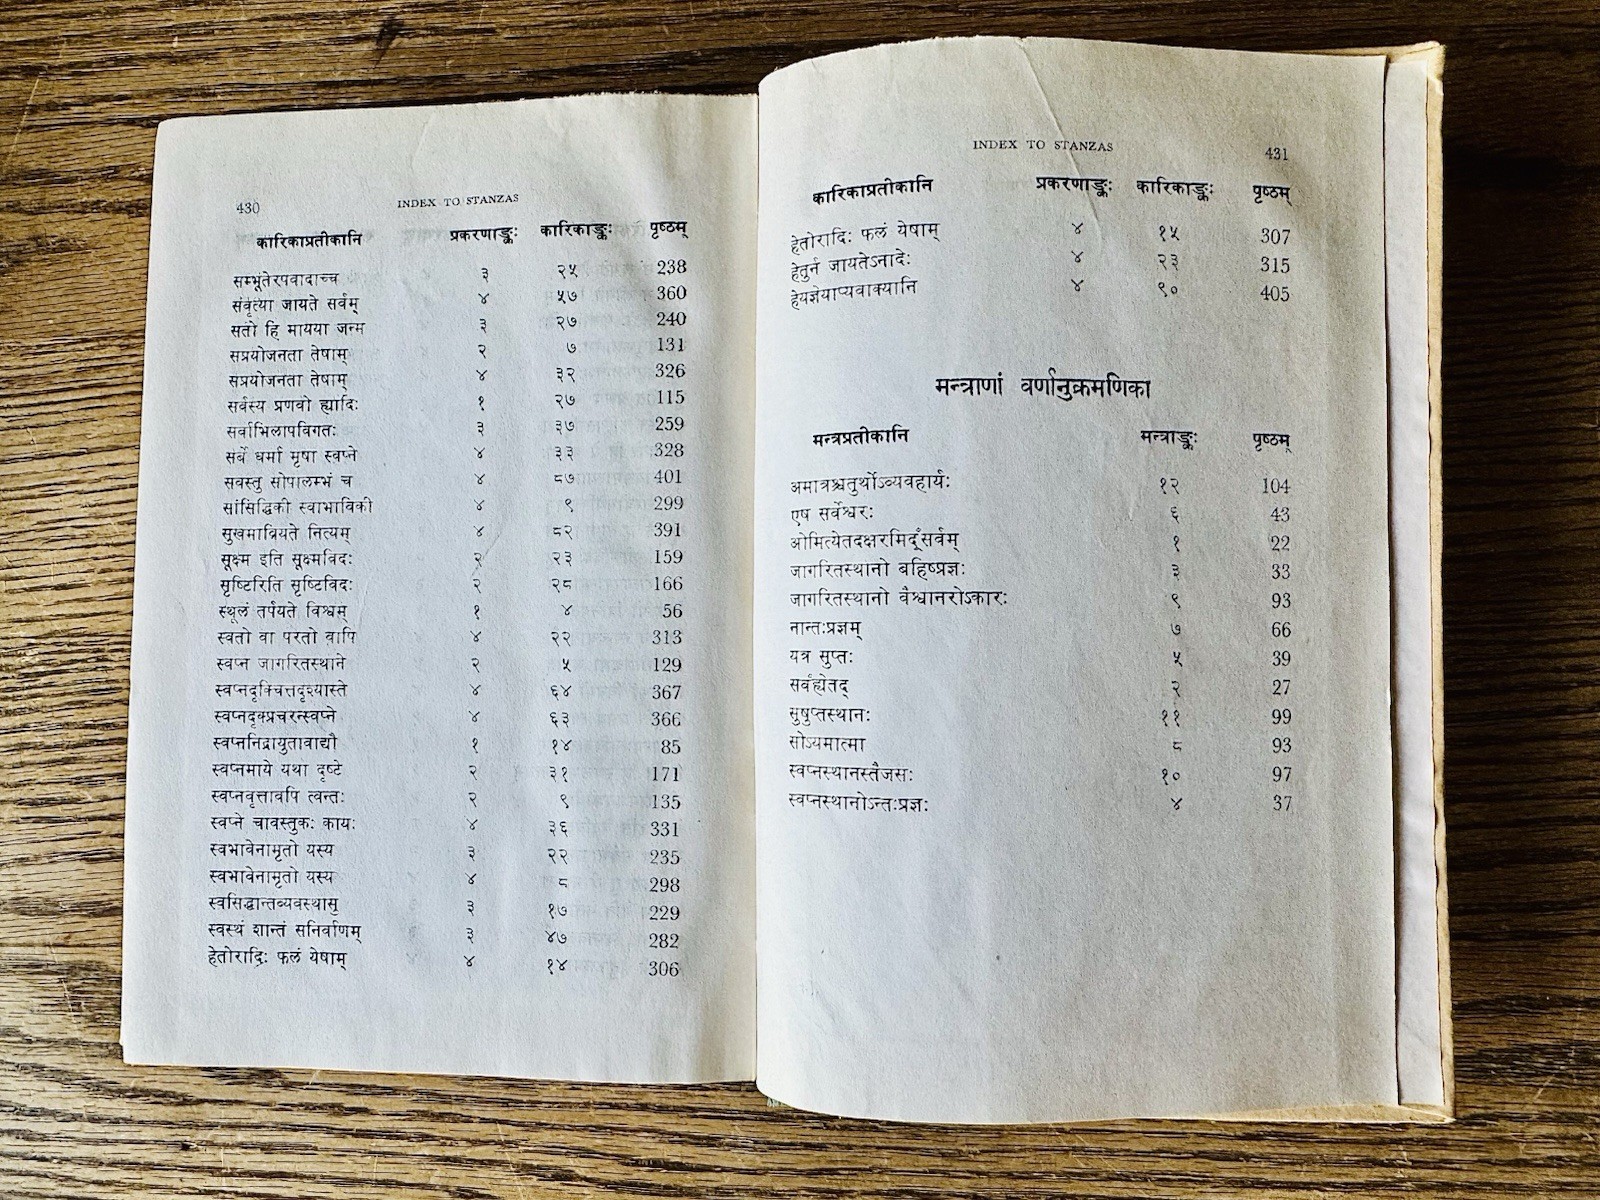 430 INDEX TO STANZAS
कारिकाप्रतीकानि प्रकरणाङ्कः कारिकाङ्कः पृष्ठम्
सम्भूतेरपवादाच्च ३ २५ 238
संवृत्या जायते सर्वम् ४ ५७ 360
सतो हि मायया जन्म ३ २७ 240
सप्रयोजनता तेषाम् २ ७ 131
सप्रयोजनता तेषाम् ४ ३२ 326
सर्वस्य प्रणवो ह्यादिः १ २७ 115
सर्वाभिलापविगतः ३ ३७ 259
सर्वे धर्मा मृषा स्वप्ने ४ ३३ 328
सवस्तु सोपालम्भं च ४ ८७ 401
सांसिद्धिकी स्वाभाविकी ४ ९ 299
सुखमाव्रियते नित्यम् ४ ८२ 391
सूक्ष्म इति सूक्ष्मविदः २ २३ 159
सृष्टिरिति सृष्टिविदः २ २८ 166
स्थूलं तर्पयते विश्वम् १ ४ 56
स्वतो वा परतो वापि ४ २२ 313
स्वप्न जागरितस्थाने २ ५ 129
स्वप्नदृक्चित्तदृश्यास्ते ४ ६४ 367
स्वप्नदृक्प्रचरन्स्वप्ने ४ ६३ 366
स्वप्ननिद्रायुतावाद्यौ १ १४ 85
स्वप्नमाये यथा दृष्टे २ ३१ 171
स्वप्नवृत्तावपि त्वन्तः २ ९ 135
स्वप्ने चावस्तुकः कायः ४ ३६ 331
स्वभावेनामृतो यस्य ३ २२ 235
स्वभावेनामृतो यस्य ४ ८ 298
स्वसिद्धान्तव्यवस्थासु ३ १७ 229
स्वस्थं शान्तं सनिर्वाणम् ३ ४७ 282
हेतोरादिः फलं येषाम् ४ १४ 306
INDEX TO STANZAS 431
कारिकाप्रतीकानि प्रकरणाङ्कः कारिकाङ्कः पृष्ठम्
हेतोरादिः फलं येषाम् ४ १५ 307
हेतुर्न जायतेऽनादेः ४ २३ 315
हेयज्ञेयाप्यवाक्यानि ४ ९० 405
मन्त्राणां वर्णानुक्रमणिका
मन्त्रप्रतीकानि मन्त्राङ्कः पृष्ठम्
अमात्रश्चतुर्थोऽव्यवहार्यः १२ 104
एष सर्वेश्वरः ६ 43
ओमित्येतदक्षरमिदँ्सर्वम् १ 22
जागरितस्थानो बहिष्प्रज्ञः ३ 33
जागरितस्थानो वैश्वानरोऽकारः ९ 93
नान्तःप्रज्ञम् ७ 66
यत्र सुप्तः ५ 39
सर्वंह्येतद् २ 27
सुषुप्तस्थानः ११ 99
सोऽयमात्मा ८ 93
स्वप्नस्थानस्तैजसः १० 97
स्वप्नस्थानोऽन्तःप्रज्ञः ४ 37